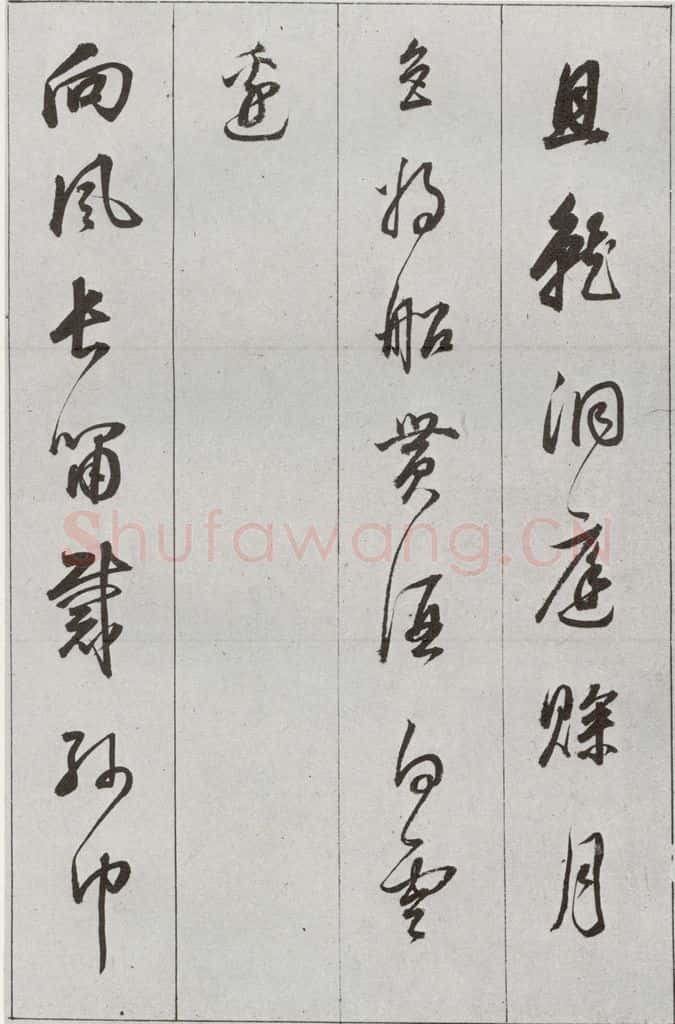 且就洞庭賒月
色将船貰酒白雲
邊
向風長嘯戴紗巾
Shufawang.CN